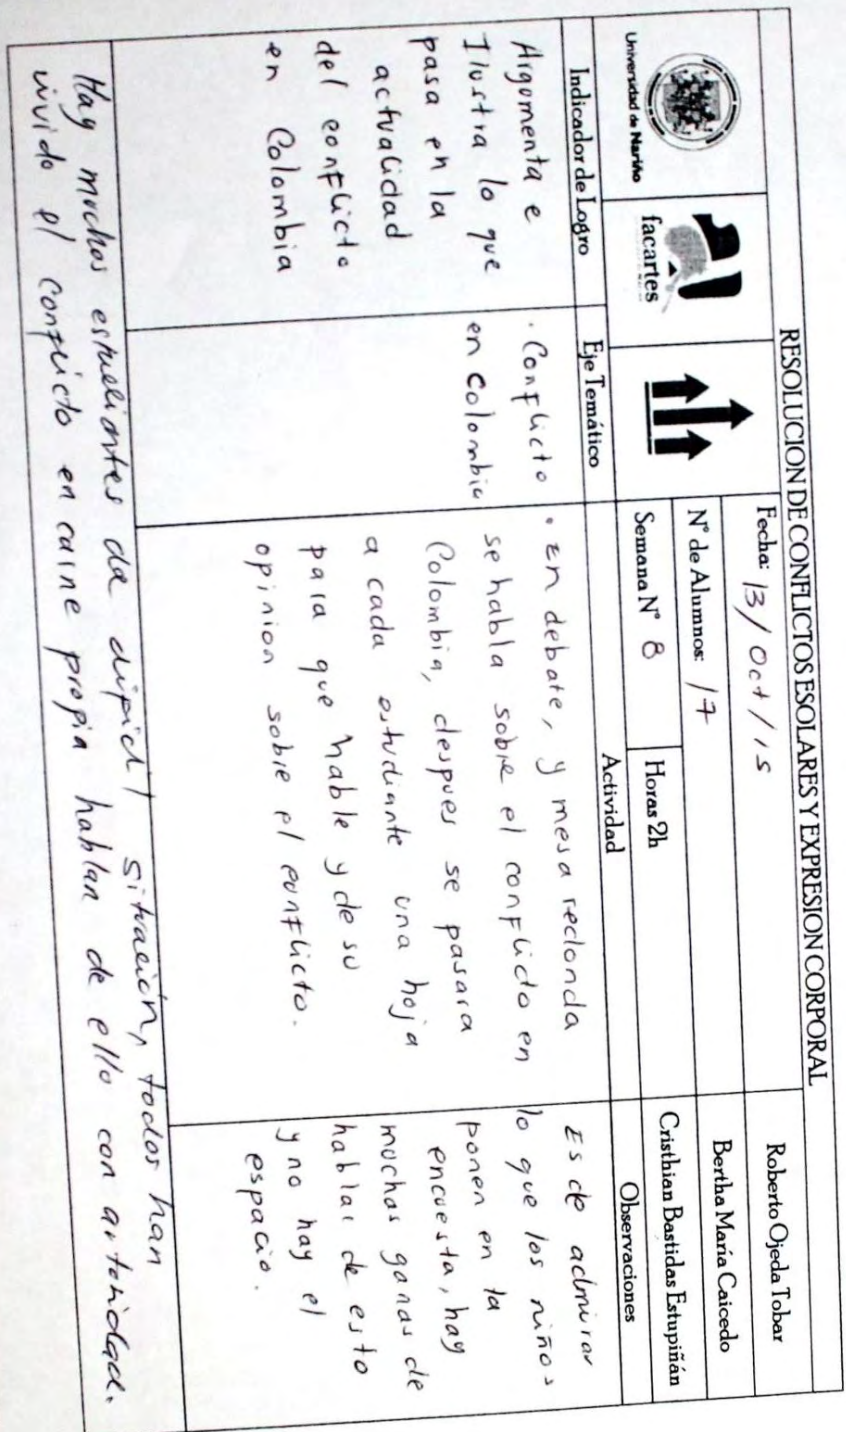 RESOLUCION DE CONFLICTOS ESCOLARES Y EXPRESION CORPORAL
Universidad de Nariño
facartes
Fecha: 13/Oct/15
Roberto Ojeda Tobar
N° de Alumnos: 17
Bertha María Caicedo
Semana N° 8
Horas 2h
Cristhian Bastidas Estupiñán
Indicador de Logro
Eje Temático
Actividad
Observaciones
Argumenta e
Ilustra lo que
pasa en la
actualidad
del conflicto
en Colombia
. Conflicto
en Colombia
. En debate, y mesa redonda
se habla sobre el conflicto en
Colombia, despues se pasara
a cada estudiante una hoja
para que hable y de su
opinion sobre el conflicto.
Es de admirar
lo que los niños
ponen en la
encuesta, hay
muchas ganas de
hablar de esto
y no hay el
espacio.
Hay muchos estudiantes da dificil situación, todos han
vivido el conflicto en carne propia hablan de ello con autoridad.